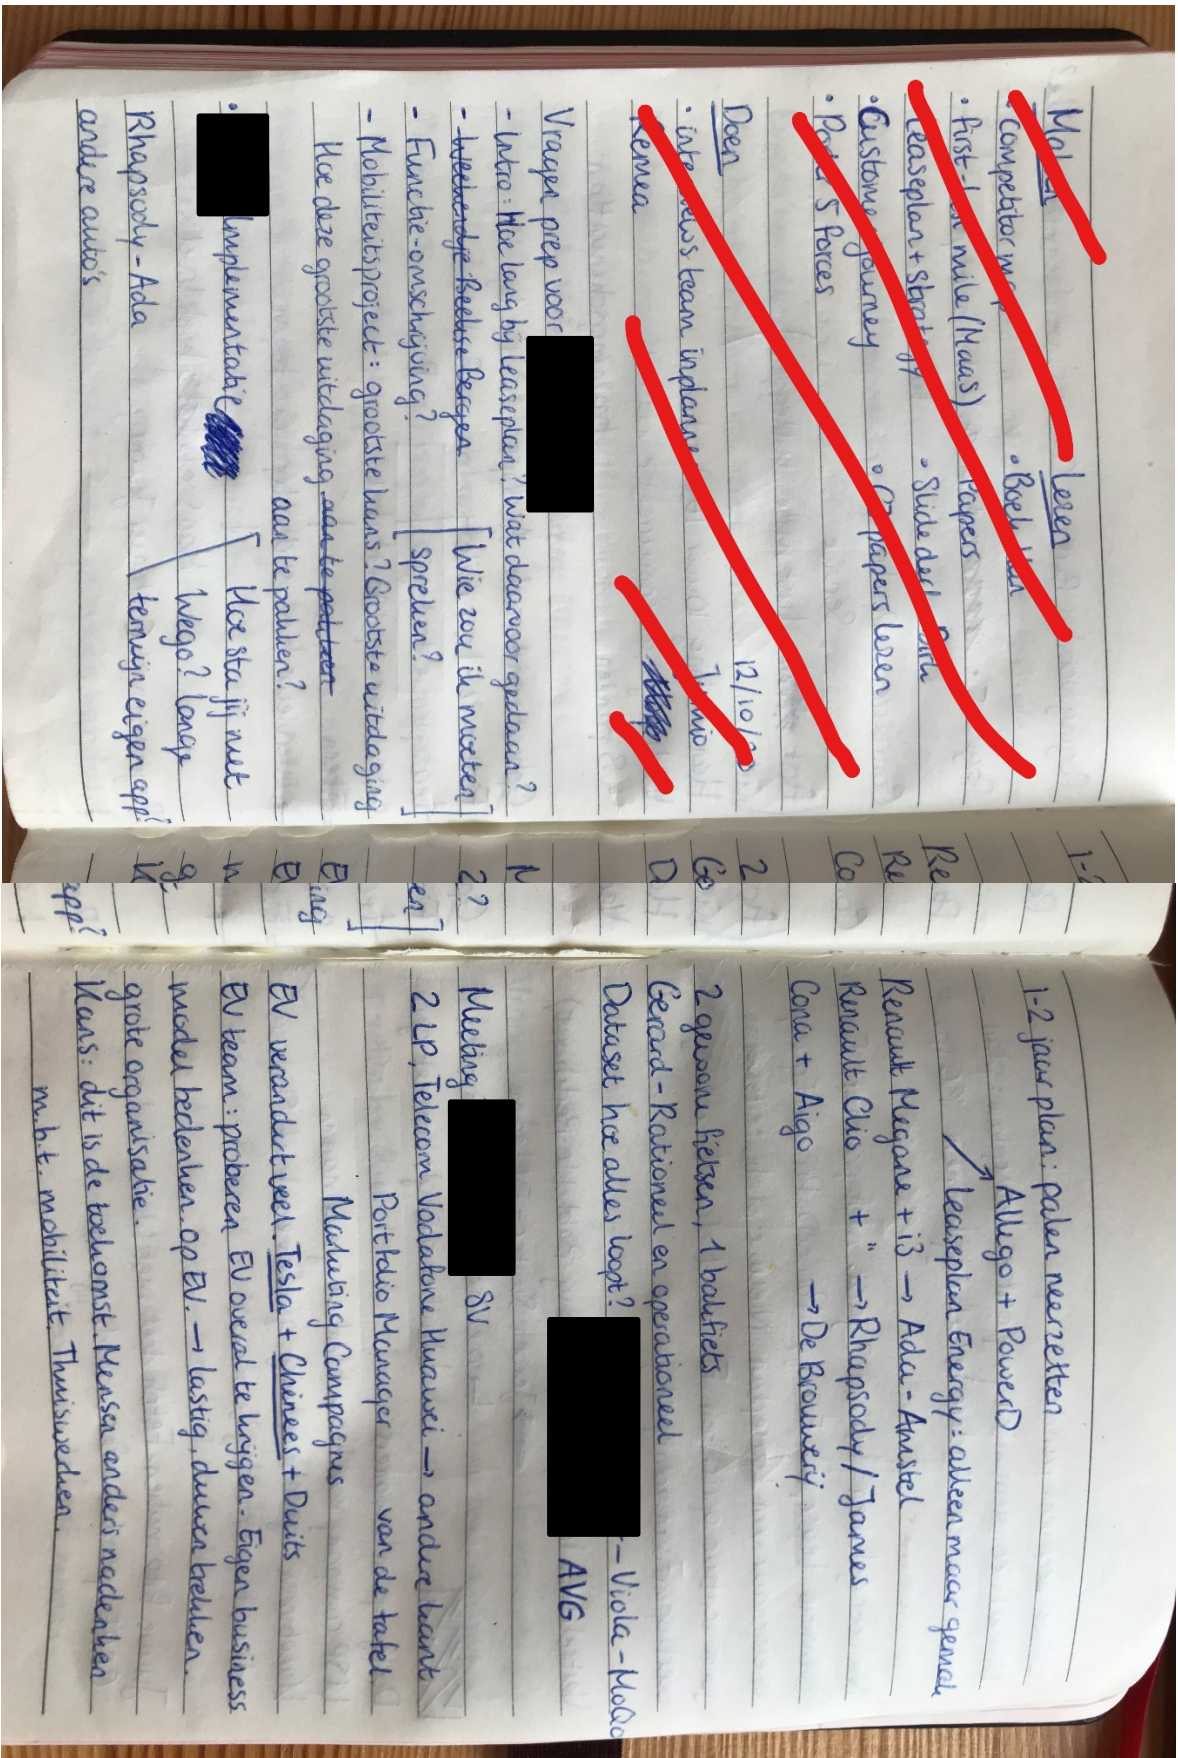 Maken
Lezen
• Competitor map
• Boek van
• First-last mile (Maas)
Papers
• Leaseplan + strategy
• Slide deck
• Customer journey
• papers lezen
• Porter 5 forces
Doen
12/10/20
• interviews team inplannen
Remea
Vragen prep voor
- Intro: Hoe lang bij Leaseplan? Wat daarvoor gedaan?
- Weekendje Beekse Bergen
[Wie zou ik moeten]
- Functie-omschrijving?
[spreken?]
- Mobiliteitsproject: grootste kans? Grootste uitdaging
Hoe deze grootste uitdaging aan te pakken
aan te pakken?
• Implementatie
Hoe sta jij met
Wego? Lange
Rhapsody - Ada
termijn eigen app?
andere auto's
1-2 jaar plan: palen neerzetten
Allego + PowerD
Leaseplan Energy: alleen maar gemak
Renault Megane + i3 → Ada - Amstel
Renault Clio + " → Rhapsody / James
Cona + Aigo → De Brouwerij
2 gewone fietsen, 1 bakfiets
Gerard - Rationeel en operationeel
Dataset hoe alles loopt?
- Viola - MoQo
AVG
Meeting
SV
2 LP, Telecom Vodafone Huawei → andere kant
Portfolio Manager van de tafel
Marketing Campagnes
EV verandert veel. Tesla + Chinees + Duits
EV team: proberen EV overal te krijgen. Eigen business
model bedenken op EV. → lastig, duwen trekken.
grote organisatie.
Kans: dit is de toekomst. Mensen anders nadenken
m.b.t. mobiliteit. Thuiswerken.